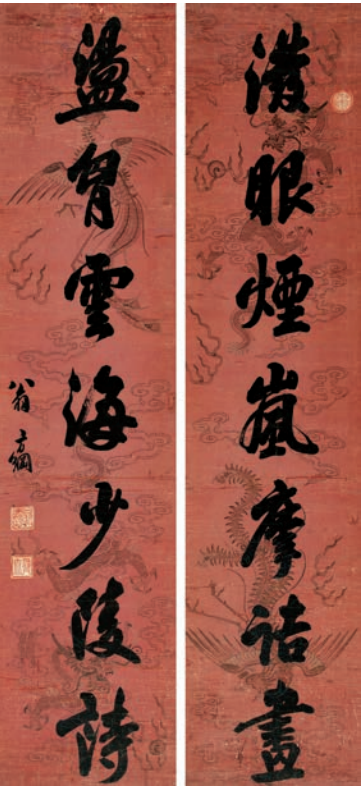 潑眼煙嵐摩詰畫
盪胷雲海少陵詩
翁方綱